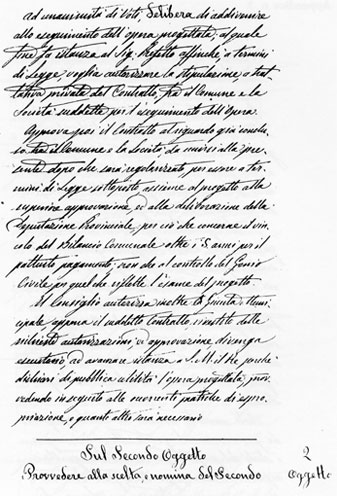 ad unanimità di voti, delibera di addivenire
allo eseguimento dell'opera progettata, al quale
fine fa istanza al Sig. Prefetto affinché, a termini
di Legge, voglia autorizzare la stipulazione a trat-
tativa privata del Contratto, fra il Comune e la
Società suddetta per l'eseguimento dell'Opera.
Approva poi il Contratto al riguardo già conclu-
so tra il Comune e la Società, da unirsi alla pre-
sente dopo che sarà regolarizzato per essere a ter-
mini di Legge sottoposto assieme al progetto alla
superiore approvazione, ed alla deliberazione della
Deputazione Provinciale, per ciò che concerne il vin-
colo del Bilancio Comunale oltre i 5 anni per il
pattuito pagamento; non che al controllo del Genio
Civile per quel che riflette l'esame del progetto.
Il Consiglio autorizza inoltre la Giunta Muni-
cipale appena il suddetto Contratto, munito delle
autorizzazioni, ed approvazione divenga
esecutorio, ad avanzare istanza a S. M. il Re, perché
dichiari di pubblica utilità l'opera progettata, prov-
vedendo in seguito alle occorrenti pratiche di espro-
priazione, e quanto altro sarà necessario
Sul Secondo Oggetto
2
Provvedere alla scelta, e nomina del Secondo
Oggetto